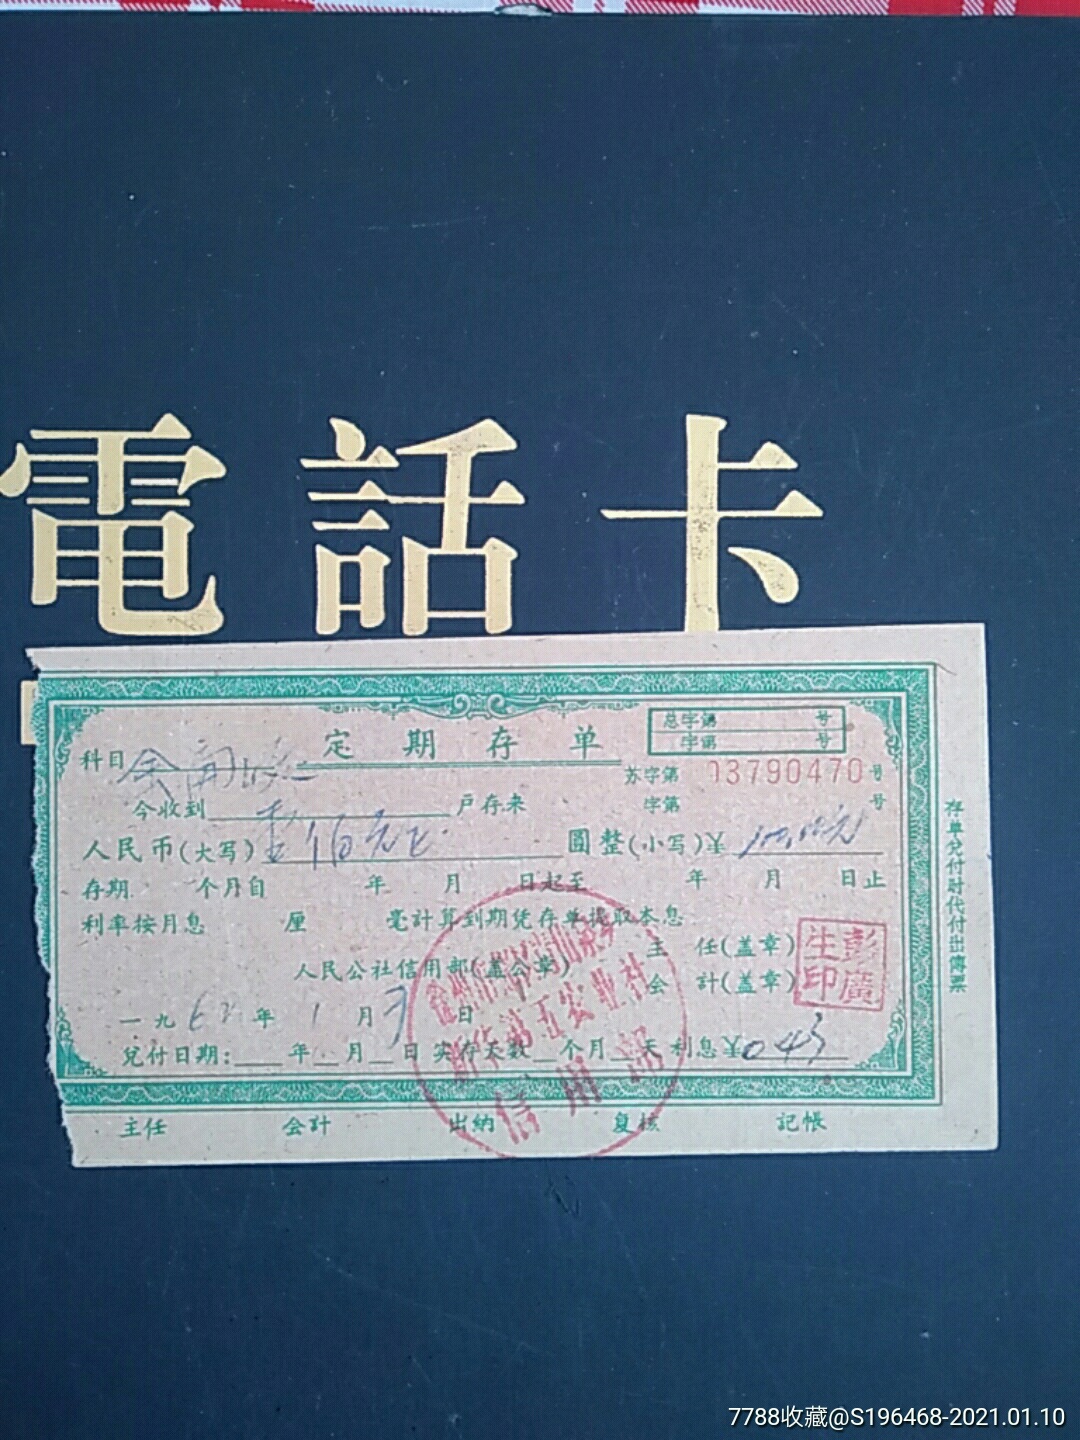 電話卡
定期存单
总字第 号
字第 号
科目
苏字第 03790470 号
今收到 户存来 字第 号
人民币(大写) 壹佰元 圓整(小写)¥
存期 个月自 年 月 日起至 年 月 日止
利率按月息 厘 毫計算到期凭存单提取本息
主任(盖章)
人民公社信用部(盖公章) 会計(盖章)
彭廣生印
一九62年1月 日
兑付日期: 年 月 日 实存天数 个月 天利息¥043
信用部
主任 会計 出納 复核 記帳
存单兑付时代付出傳票
7788收藏@S196468-2021.01.10